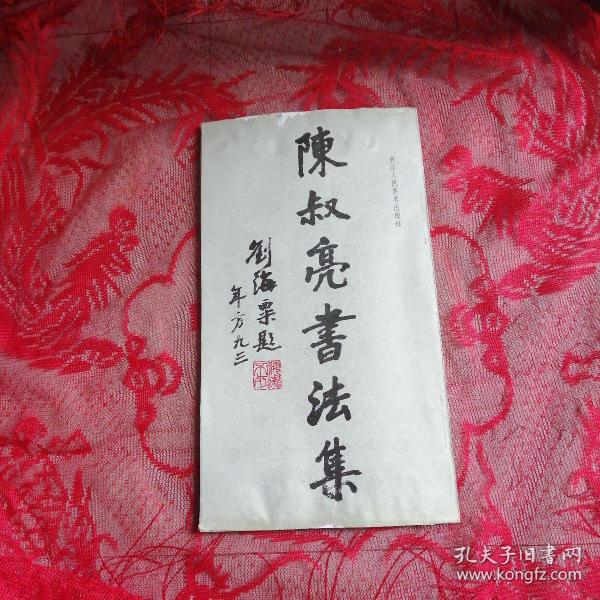 浙江人民美术出版社
陳叔亮書法集
劉海粟題
年方九三
孔夫子旧書网
www.kongfz.com